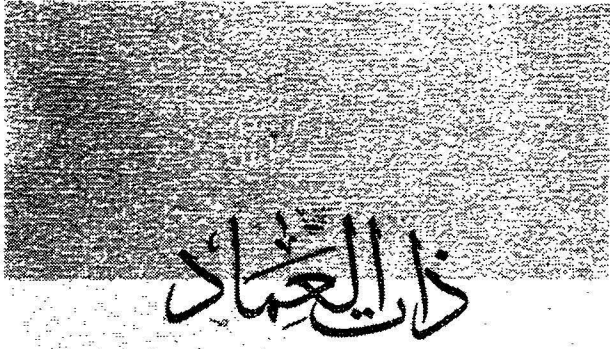 ذات العماد